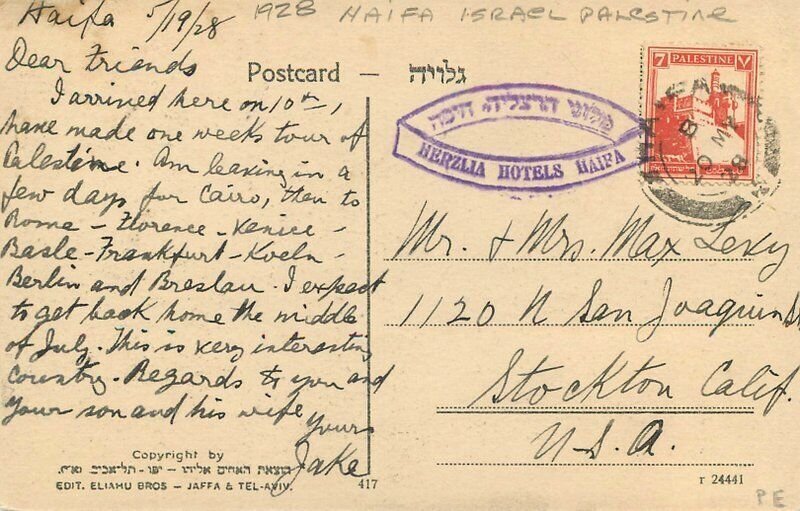 1928 HAIFA ISRAEL PALESTINE
Haifa 5/19/28
Dear Friends
I arrived here on 10th,
have made one weeks tour of
Palestine. Am leaving in a
few days for Cairo, then to
Rome - Florence - Venice -
Basle - Frankfurt - Koeln -
Berlin and Breslau. I expect
to get back home the middle
of July. This is very interesting
Country. Regards to you and
your son and his wife
Yours
Jake
Copyright by
הוצאת האחים אליהו — יפו - תל-אביב. (א"י).
EDIT. ELIAHU BROS – JAFFA & TEL-AVIV.
417
Postcard — גלויה
מלוני הרצליה, חיפה
HERZLIA HOTELS HAIFA
7 PALESTINE ٧
HAIFA
Mr. & Mrs. Max Levy
1120 N San Joaquin St
Stockton Calif.
U.S.A.
r 24441
PE